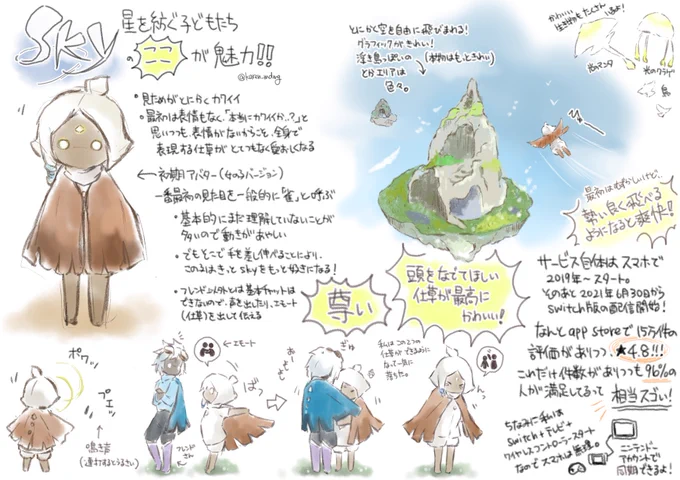 Sky 星を紡ぐ子どもたち
の ココ が魅力!!
・見ためがとにかくカワイイ
・最初は表情もなく、「本当にカワイイか…?」と
思いつつも、表情がないからこそ、全身で
表現する仕草がとてつもなく愛おしくなる
← 初期アバター
一番最初の見た目を一般的に「雀」と呼ぶ
・基本的にまだ理解していないことが
多いので動きがあやしい
・でもそこで手を差し伸べることにより、
この子はきっとskyをもっと好きになる!
・フレンド以外とは基本チャットは
できないので、声を出したり、エモート
(仕草)を出して伝える
尊い
とにかく空を自由に飛びまわれる!
グラフィックがきれい!
浮き島っぽいの
とかエリアは
色々。
(本物はもっときれい)
かわいい
生き物もたくさん
いるよ!
光のマンタ
光のクラゲ
鳥
最初はむずかしいけど、
勢い良く飛べる
ようになると爽快!!
頭をなでてほしい
仕草が最高に
かわいい!
サービス自体はスマホで
2019年〜スタート。
そのあと2021年6月30日から
Switch版の配信開始!
なんと app storeで15万件の
評価がありつつ、★4.8!!!
これだけ件数がありつつも96%の
人が満足してるって
相当スゴい!
ちなみに私は
Switch+テレビ+
ワイヤレスコントローラースタート
なのでスマホは無理。
ニンテンドー
アカウントで
同期できるよ!
ポワッ
プエッ
↑
鳴き声
(連打するとうるさい)
←エモート
ばっ
フレンド
さん
ぎゅ
私はこの2つの
仕草ができるように
なって一気に
落ちた。